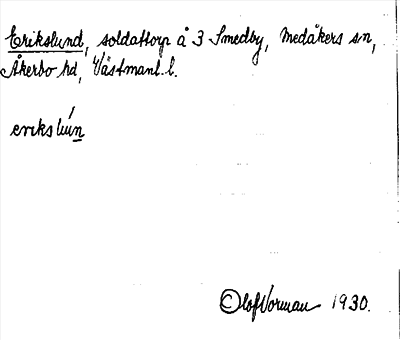 Erikslund, soldattorp å 3 Smedby, Medåkers sn,
Åkerbo hd, Västmanl. l.
erikslún
Olof Vorman 1930.